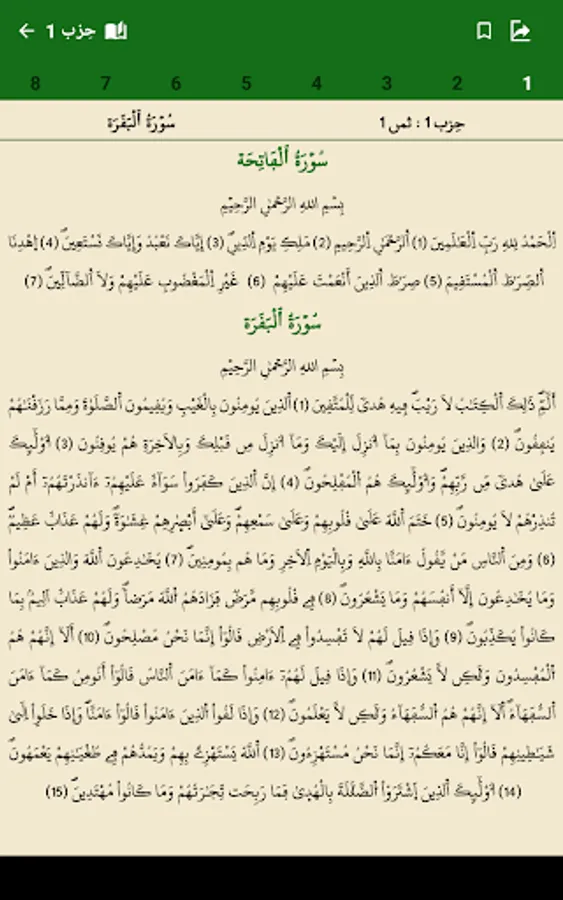 حزب 1
1 2 3 4 5 6 7 8
حزب 1 : ثمن 1 سُورَةُ اُ۬لْبَقَرَة
سُورَةُ اُ۬لْفَاتِحَة
بِسْمِ اللهِ الرَّحْمٰنِ الرَّحِيْمِ
اَ۬لْحَمْدُ لِلهِ رَبِّ اِ۬لْعَٰلَمِينَ (1) اَ۬لرَّحْمَٰنِ اِ۬لرَّحِيمِ (2) مَلِكِ يَوْمِ اِ۬لدِّينِۖ (3) إِيَّاكَ نَعْبُدُ وَإِيَّاكَ نَسْتَعِينُۖ (4) اُ۪هْدِنَا
اَ۬لصِّرَٰطَ اَ۬لْمُسْتَقِيمَ (5) صِرَٰطَ اَ۬لذِينَ أَنْعَمْتَ عَلَيْهِمْ (6) غَيْرِ اِ۬لْمَغْضُوبِ عَلَيْهِمْ وَلَا اَ۬لضَّآلِّينَۖ (7)
سُورَةُ اُ۬لْبَقَرَة
بِسْمِ اللهِ الرَّحْمٰنِ الرَّحِيْمِ
أَلَٓمِّٓۖ ذَٰلِكَ اَ۬لْكِتَٰبُ لَا رَيْبَۖ فِيهِ هُدىٗ لِّلْمُتَّقِينَ (1) اَ۬لذِينَ يُومِنُونَ بِالْغَيْبِ وَيُقِيمُونَ اَ۬لصَّلَوٰةَ وَمِمَّا رَزَقْنَٰهُمْ
يُنفِقُونَۖ (2) وَالذِينَ يُومِنُونَ بِمَآ أُنزِلَ إِلَيْكَ وَمَآ أُنزِلَ مِن قَبْلِكَ وَبِالَاخِرَةِ هُمْ يُوقِنُونَ (3) أُوْلَٰٓئِكَ
عَلَىٰ هُدىٗ مِّن رَّبِّهِمْۖ وَأُوْلَٰٓئِكَ هُمُ اُ۬لْمُفْلِحُونَۖ (4) إِنَّ اَ۬لذِينَ كَفَرُواْ سَوَآءٌ عَلَيْهِمُۥٓ ءَآنذَرْتَهُمُۥٓ أَمْ لَمْ
تُنذِرْهُمْ لَا يُومِنُونَۖ (5) خَتَمَ اَ۬للَّهُ عَلَىٰ قُلُوبِهِمْ وَعَلَىٰ سَمْعِهِمْۖ وَعَلَىٰٓ أَبْصِٰرِهِمْ غِشَٰوَةٞۖ وَلَهُمْ عَذَابٌ عَظِيمٞۖ
(6) وَمِنَ اَ۬لنَّاسِ مَنْ يَّقُولُ ءَامَنَّا بِاللَّهِ وَبِالْيَوْمِ اِ۬لَاخِرِ وَمَا هُم بِمُومِنِينَۖ (7) يُخَٰدِعُونَ اَ۬للَّهَ وَالذِينَ ءَامَنُواْ
وَمَا يُخَٰدِعُونَ إِلَّآ أَنفُسَهُمْ وَمَا يَشْعُرُونَۖ (8) فِے قُلُوبِهِم مَّرَضٞ فَزَادَهُمُ اُ۬للَّهُ مَرَضاٗۖ وَلَهُمْ عَذَابٌ اَلِيمُۢ بِمَا
كَانُواْ يُكَذِّبُونَۖ (9) وَإِذَا قِيلَ لَهُمْ لَا تُفْسِدُواْ فِے اِ۬لَارْضِ قَالُوٓاْ إِنَّمَا نَحْنُ مُصْلِحُونَۖ (10) أَلَآ إِنَّهُمْ هُمُ
اُ۬لْمُفْسِدُونَ وَلَٰكِن لَّا يَشْعُرُونَۖ (11) وَإِذَا قِيلَ لَهُمُۥٓ ءَامِنُواْ كَمَآ ءَامَنَ اَ۬لنَّاسُ قَالُوٓاْ أَنُومِنُ كَمَآ ءَامَنَ
اَ۬لسُّفَهَآءُۖ اَ۬لَآ إِنَّهُمْ هُمُ اُ۬لسُّفَهَآءُ وَلَٰكِن لَّا يَعْلَمُونَۖ (12) وَإِذَا لَقُواْ اُ۬لذِينَ ءَامَنُواْ قَالُوٓاْ ءَامَنَّاۖ وَإِذَا خَلَوِاْ اِلَىٰ
شَيَٰطِينِهِمْ قَالُوٓاْ إِنَّا مَعَكُمُۥٓ إِنَّمَا نَحْنُ مُسْتَهْزِءُونَۖ (13) اَ۬للَّهُ يَسْتَهْزِۓُ بِهِمْ وَيَمُدُّهُمْ فِے طُغْيَٰنِهِمْ يَعْمَهُونَۖ
(14) أُوْلَٰٓئِكَ اَ۬لذِينَ اَ۪شْتَرَوُاْ اُ۬لضَّلَٰلَةَ بِالْهُد۪يٰ فَمَا رَبِحَت تِّجَٰرَتُهُمْ وَمَا كَانُواْ مُهْتَدِينَۖ (15)